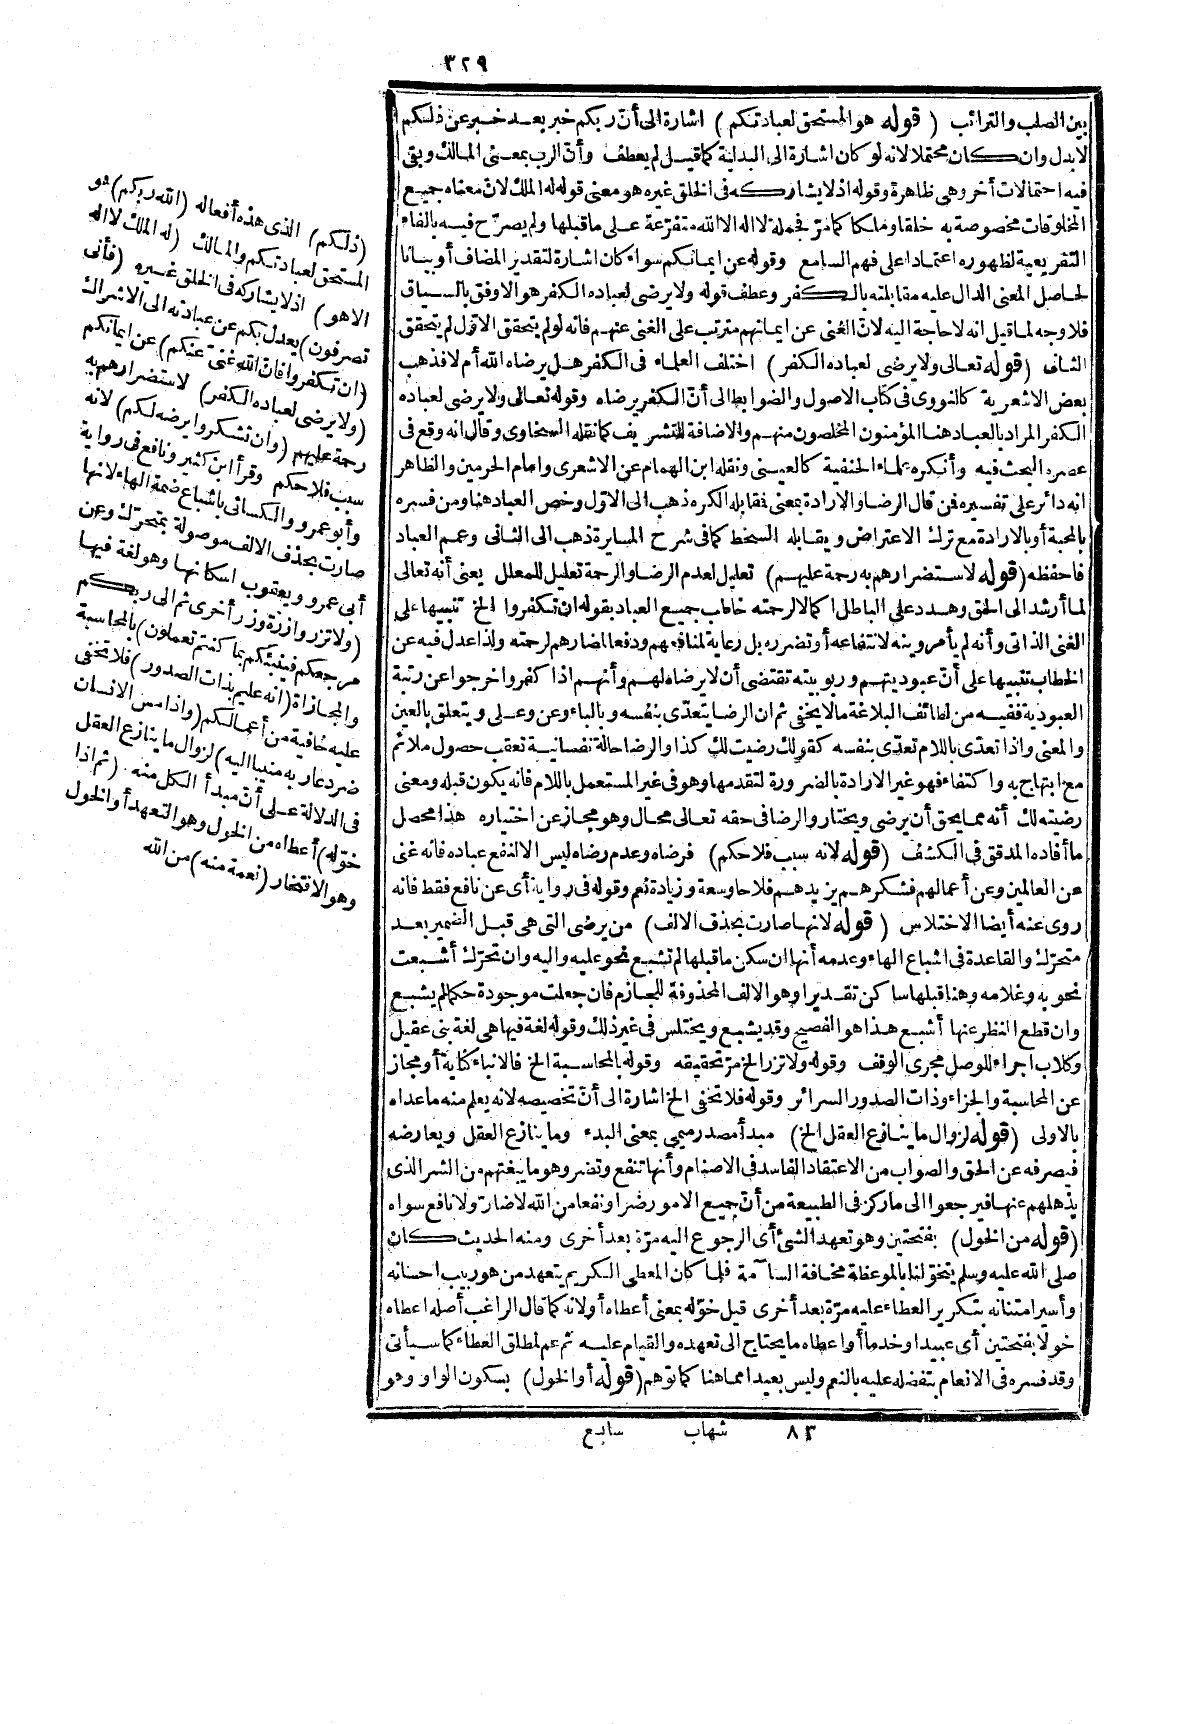 ٣٢٩
بين الصلب والترائب (قوله هو المستحق لعبادتكم) اشارة الى أنّ ربكم خبر بعد خبر عن ذلكم
لا بدل وان كان محتملا لانه لو كان اشارة الى البدلية كما قيل لم يعطف وأنّ الرب بمعنى المالك وبقى
فيه احتمالات أخر وهى ظاهرة وقوله اذلا يشاركه فى الخلق غيره هو معنى قوله له الملك لانّ معناه جميع
المخلوقات مخصوصة به خلقا وملكا كما مرّ فجملة لا اله الا الله متفرّعة على ما قبلها ولم يصرّح فيه بالفاء
التفريعية لظهوره اعتمادا على فهم السامع وقوله عن ايمانكم سواء كان اشارة لتقدير المضاف أو بيانا
لحاصل المعنى الدال عليه مقابلته بالكفر وعطف قوله ولا يرضى لعباده الكفر هو الاوفق بالسياق
فلا وجه لما قيل انه لا حاجة اليه لانّ الغنى عن ايمانهم مترتب على الغنى عنهم فانه لو لم يتحقق الاوّل لم يتحقق
الثانى (قوله تعالى ولا يرضى لعباده الكفر) اختلف العلماء فى الكفر هل يرضاه الله أم لا فذهب
بعض الاشعرية كالنووى فى كتاب الاصول والضوابط الى أنّ الكفر يرضاه وقوله تعالى ولا يرضى لعباده
الكفر المراد بالعباد هنا المؤمنون المخلصون منهم والاضافة للتشريف كما نقله السخاوى وقال انه وقع فى
عصره البحث فيه وأنكره علماء الحنفية كالعينى ونقله ابن الهمام عن الاشعرى وامام الحرمين والظاهر
انه دائر على تفسيره فمن قال الرضا والارادة بمعنى فقابله الكره ذهب الى الاوّل وخص العباد هنا ومن فسره
بالمحبة أو بالارادة مع ترك الاعتراض ويقابله السخط كما فى شرح المسايرة ذهب الى الثانى وعمم العباد
فاحفظه (قوله لاستضرارهم به رحمة عليهم) تعليل لعدم الرضا والرحمة تعليل للمعلل يعنى أنه تعالى
لما أرشد الى الحق وهدد على الباطل اكمالا لرحمته خاطب جميع العباد بقوله ان تكفروا الخ تنبيها على
الغنى الذاتى وأنه لم يأمر وينه لانتفاعه أو تضرره بل رعاية لمنافعهم ودفعا لمضارهم لرحمته ولذا عدل فيه عن
الخطاب تنبيها على أنّ عبوديتهم وربوبيته تقتضى أن لا يرضاه لهم وأنهم اذا كفروا خرجوا عن رتبة
العبودية ففيه من لطائف البلاغة ما لا يخفى ثم ان الرضا يتعدّى بنفسه وبالباء وعن وعلى ويتعلق بالعين
والمعنى واذا تعدّى باللام تعدّى بنفسه كقولك رضيت لك كذا والرضا حالة نفسانية تعقب حصول ملائم
مع ابتهاج به واكتفاء فهو غير الارادة بالضرورة لتقدمها وهو فى غير المستعمل باللام فانه يكون قبله ومعنى
رضيته لك أنه مما يحق أن يرضى ويختار والرضا فى حقه تعالى محال وهو مجاز عن اختياره هذا محصل
ما أفاده المدقق فى الكشف (قوله لانه سبب فلاحكم) فرضاه وعدم رضاه ليس الا لنفع عباده فانه غنى
عن العالمين وعن أعمالهم فشكرهم يزيدهم فلاحا وسعة وزيادة نعم وقوله فى رواية أى عن نافع فقط فانه
روى عنه أيضا الاختلاس (قوله لانها صارت بحذف الالف) من يرضى التى هى قبل الضمير بعد
متحرّك والقاعدة فى اشباع الهاء وعدمه أنها ان سكن ما قبلها لم تشبع نحو عليه واليه وان تحرّك أشبعت
نحو به وغلامه وهنا قبلها ساكن تقديرا وهو الالف المحذوفة للجازم فان جعلت موجودة حكما لم يشبع
وان قطع النظر عنها أشبع هذا هو الفصيح وقد يشبع ويختلس فى غير ذلك وقوله لغة فيها هى لغة بنى عقيل
وكلاب اجراء للوصل مجرى الوقف وقوله ولا تزر الخ مرّ تحقيقه وقوله بالمحاسبة الخ فالانباء كناية أو مجاز
عن المحاسبة والجزاء وذات الصدور السرائر وقوله فلا تخفى الخ اشارة الى أنّ تخصيصه لانه يعلم منه ما عداه
بالاولى (قوله لزوال ما ينازع العقل الخ) مبدأ مصدر ميمى بمعنى البدء وما ينازع العقل ويعارضه
فيصرفه عن الحق والصواب من الاعتقاد الفاسد فى الاصنام وأنها تنفع وتضر وهو ما يبغتهم من الشر الذى
يذهلهم عنها فيرجعوا الى ما ركز فى الطبيعة من أنّ جميع الامور ضرا ونفعا من الله لا ضارّ ولا نافع سواه
(قوله من الخول) بفتحتين وهو تعهد الشئ أى الرجوع اليه مرّة بعد أخرى ومنه الحديث كان
صلى الله عليه وسلم يتخوّلنا بالموعظة مخافة السآمة فلما كان المعطى الكريم يتعهد من هو ربيب احسانه
وأسير امتنانه بتكرير العطاء عليه مرّة بعد أخرى قيل خوّله بمعنى أعطاه أو لانه كما قال الراغب أصله اعطاه
خولا بفتحتين أى عبيدا وخدما أو اعطاه ما يحتاج الى تعهده والقيام عليه ثم عم لمطلق العطاء كما سيأتى
وقد فسره فى الانعام بتفضله عليه بالنعم وليس بعيدا مما هنا كما توهم (قوله أو الخول) بسكون الواو وهو
(ذلكم) الذى هذه أفعاله (الله ربكم) هو
المستحق لعبادتكم والمالك (له الملك لا اله
الا هو) اذلا يشاركه فى الخلق غيره (فأنى
تصرفون) يعدل بكم عن عبادته الى الاشراك
(ان تكفروا فانّ الله غنىّ عنكم) عن ايمانكم
(ولا يرضى لعباده الكفر) لاستضرارهم به
رحمة عليهم (وان تشكروا يرضه لكم) لانه
سبب فلاحكم وقرأ ابن كثير ونافع فى رواية
وأبو عمرو والكسائى باشباع ضمة الهاء لانها
صارت بحذف الالف موصولة بمتحرّك وعن
أبى عمرو ويعقوب اسكانها وهو لغة فيها
(ولا تزر وازرة وزر أخرى ثم الى ربكم
مرجعكم فينبئكم بما كنتم تعملون) بالمحاسبة
والمجازاة (انه عليم بذات الصدور) فلا تخفى
عليه خافية من أعمالكم (واذا مس الانسان
ضر دعا ربه منيبا اليه) لزوال ما ينازع العقل
فى الدلالة على أنّ مبدأ الكل منه (ثم اذا
خوّله) أعطاه من الخول وهو التعهد أو الخول
وهو الافتخار (نعمة منه) من الله
٨٣ شهاب سابع